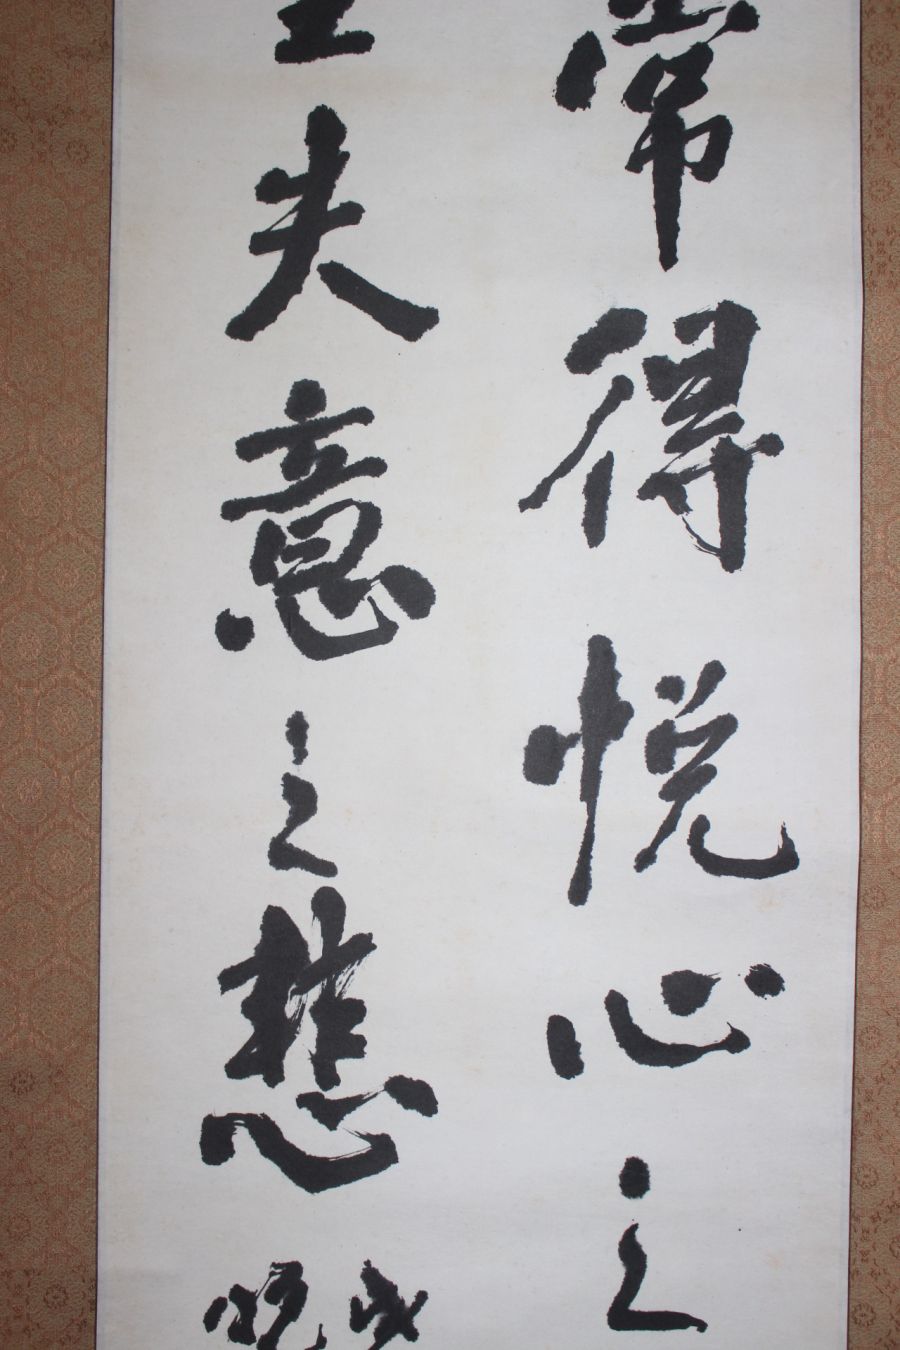 常得悦心之
失意之悲